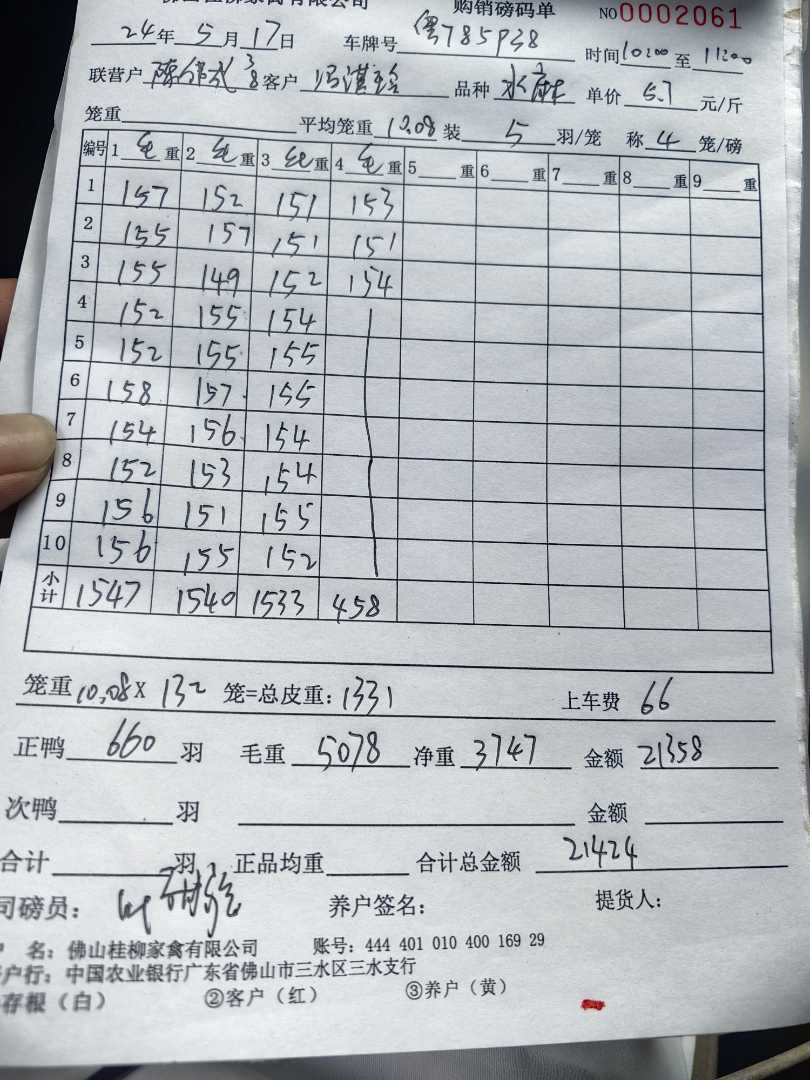 佛山桂柳家禽有限公司 购销磅码单 NO 0002061
24年5月17日 车牌号 粤785P38 时间10:00至11:00
联营户 客户 品种 单价 5.7 元/斤
笼重 平均笼重 10.08 装 5 羽/笼 称 4 笼/磅
编号 1 毛 重 2 毛 重 3 毛 重 4 毛 重 5 重 6 重 7 重 8 重 9 重
1 157 152 151 153
2 155 157 151 151
3 155 149 152 154
4 152 155 154
5 152 155 155
6 158 157 155
7 154 156 154
8 152 153 154
9 156 151 155
10 156 155 152
小计 1547 1540 1533 458
笼重 10.08 X 132 笼=总皮重: 1331 上车费 66
正鸭 660 羽 毛重 5078 净重 3747 金额 21358
次鸭 羽 金额
合计 羽 正品均重 合计总金额 21424
司磅员: 养户签名: 提货人:
户 名: 佛山桂柳家禽有限公司 账号: 444 401 010 400 169 29
户行: 中国农业银行广东省佛山市三水区三水支行
存根（白） ②客户（红） ③养户（黄）